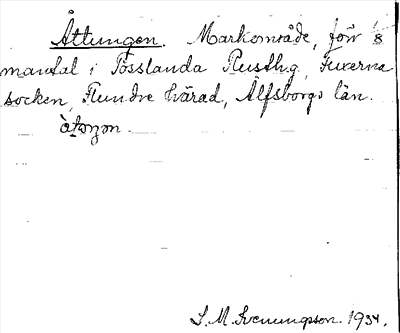 Åttungen. Markområde, förr ⅛
mantal i Posslanda Rusthg, Fuxerna
socken, Flundre härad, Älfsborgs län.
àtoŋən
S. M. Svenungsson. 1934.